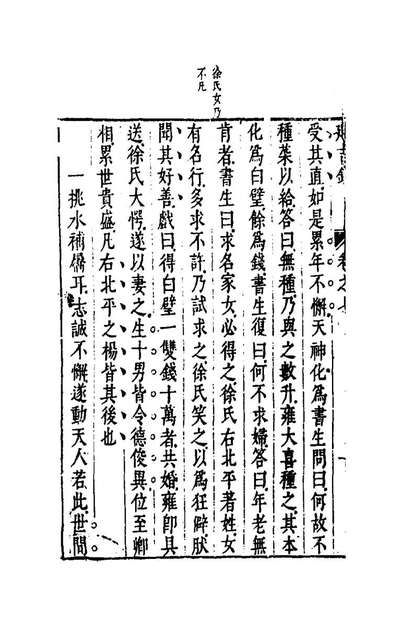 徐氏女乃
不凡
受其直如是累年不懈天神化爲書生問曰何故不
種菜以給答曰無種乃與之數升雍大喜種之其本
化爲白璧餘爲錢書生復曰何不求婦答曰年老無
肯者書生曰求名家女必得之徐氏右北平著姓女
有名行多求不許乃試求之徐氏笑之以爲狂僻肰
聞其好善戲曰得白璧一雙錢十萬者共婚雍卽具
送徐氏大愕遂以妻之生十男皆令德俊異位至卿
相累世貴盛凡右北平之楊皆其後也
一挑水補屩耳志誠不懈遂動天人若此世間